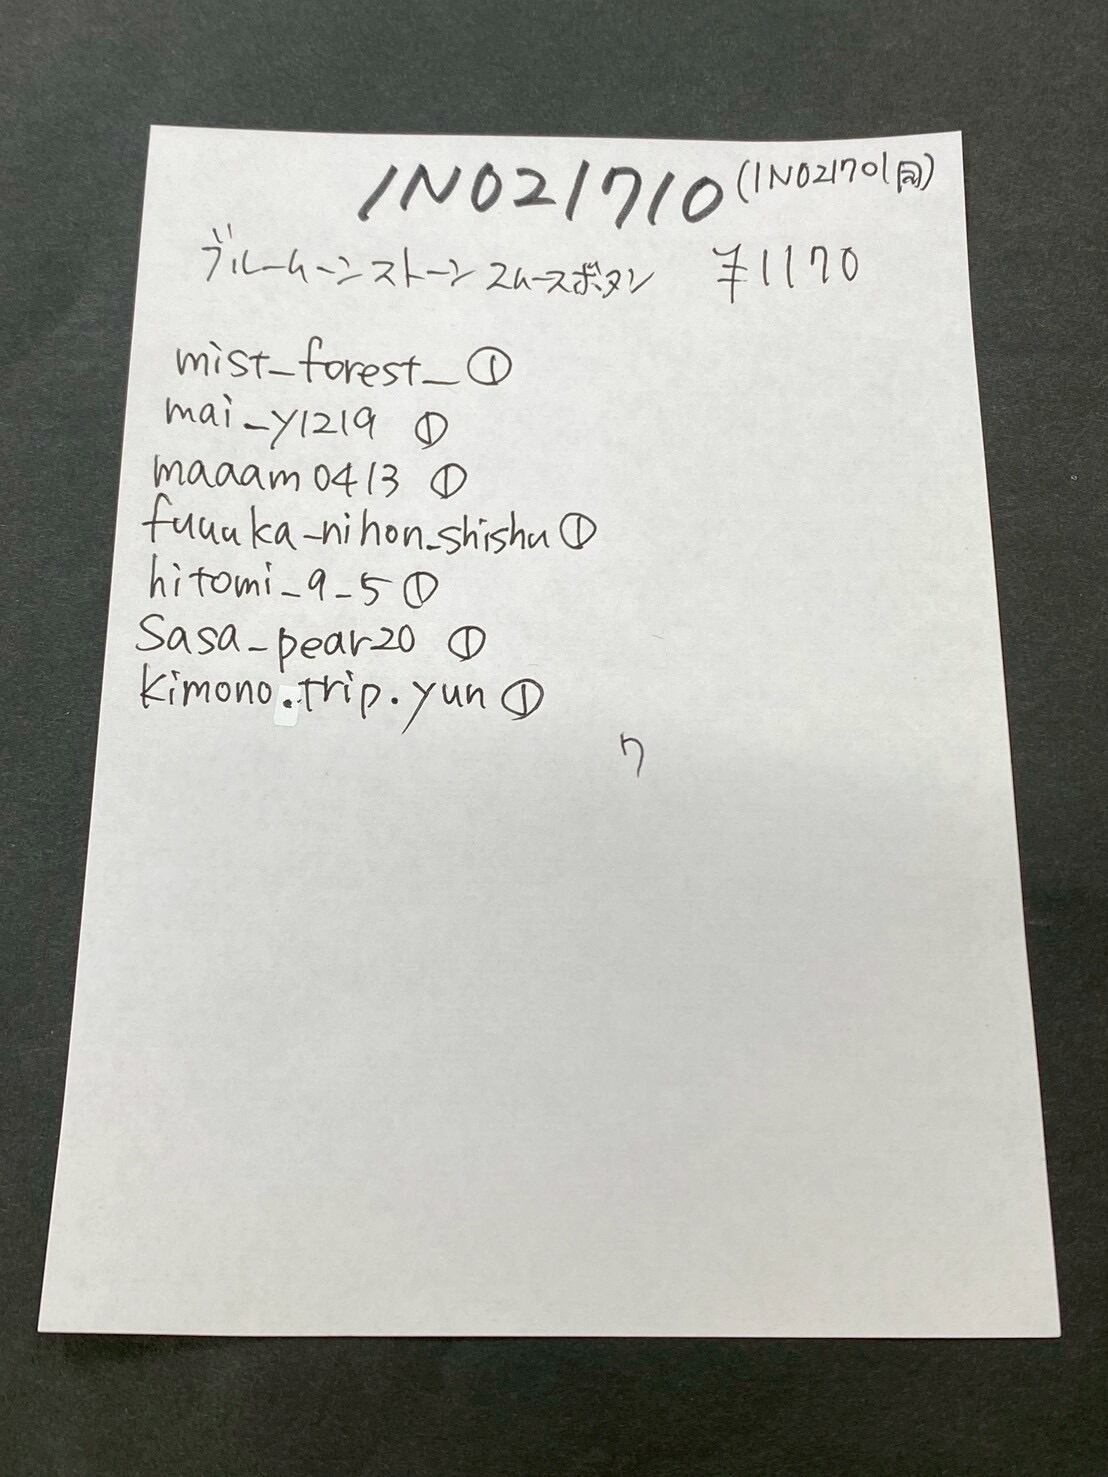 1N021710 (1N021701同)
ブルームーンストーン スムースボタン ¥1170
mist_forest_ ①
mai_y1219 ①
maaam0413 ①
fuuuka_nihon_shishu ①
hitomi_9_5 ①
sasa_pear20 ①
kimono.trip.yun ①
7